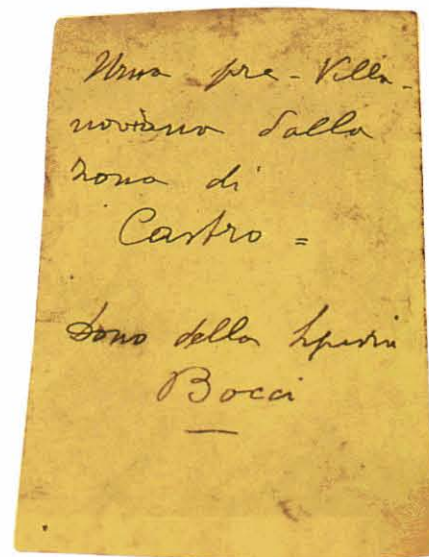 Urna pre-Villa-
noviana dalla
zona di
Castro =
Dono della
Bocci